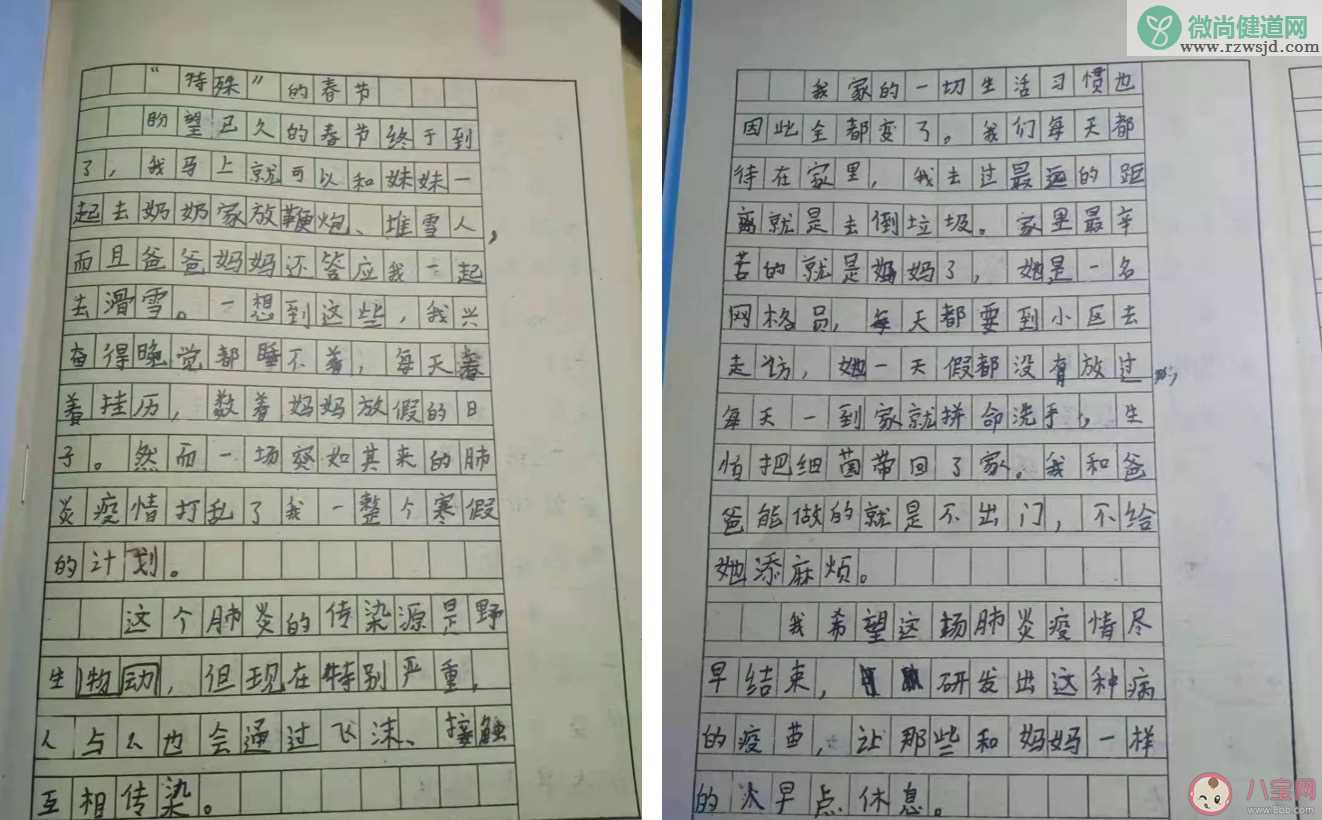 “特殊”的春节
盼望已久的春节终于到
了，我马上就可以和妹妹一
起去奶奶家放鞭炮、堆雪人，
而且爸爸妈妈还答应我一起
去滑雪。一想到这些，我兴
奋得晚觉都睡不着，每天看
着挂历，数着妈妈放假的日
子。然而一场突如其来的肺
炎疫情打乱了我一整个寒假
的计划。
这个肺炎的传染源是野
生物动，但现在特别严重，
人与人也会通过飞沫、接触
互相传染。
我家的一切生活习惯也
因此全都变了。我们每天都
待在家里，我去过最远的距
离就是去倒垃圾。家里最辛
苦的就是妈妈了，她是一名
网格员，每天都要到小区去
走访，她一天假都没有放过，
每天一到家就拼命洗手，生
怕把细菌带回了家。我和爸
爸能做的就是不出门，不给
她添麻烦。
我希望这场肺炎疫情尽
早结束，研发出这种病
的疫苗，让那些和妈妈一样
的人早点休息。
微尚健道网
www.rzwsjd.com
八宝网
www.8bb.com